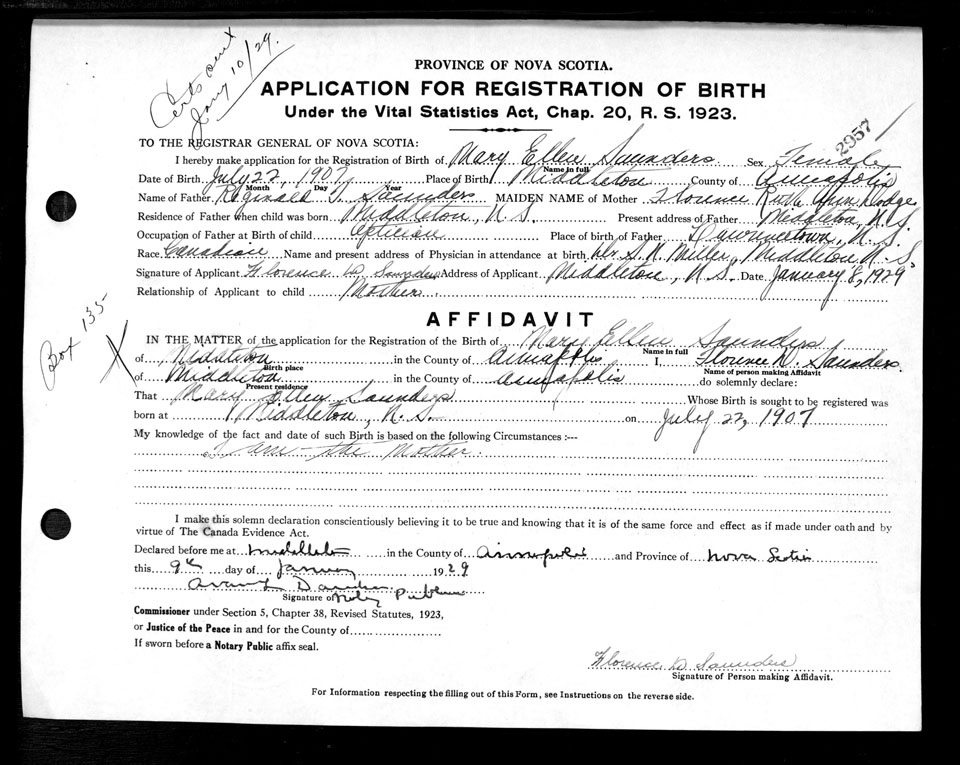 Certs sent
Jany 10/29.
PROVINCE OF NOVA SCOTIA.
APPLICATION FOR REGISTRATION OF BIRTH
Under the Vital Statistics Act, Chap. 20, R. S. 1923.
2957
TO THE REGISTRAR GENERAL OF NOVA SCOTIA:
I hereby make application for the Registration of Birth of Mary Ellen Saunders Sex Female
Name in full
Date of Birth July 22, 1907 Place of Birth Middleton County of Annapolis
Month Day Year
Name of Father Reginald T. Saunders MAIDEN NAME of Mother Florence Dodge
Residence of Father when child was born Middleton, N. S. Present address of Father Middleton, N. S.
Occupation of Father at Birth of child Optician Place of birth of Father Lawrencetown, N. S.
Race Canadian Name and present address of Physician in attendance at birth Dr. S. N. Miller, Middleton N. S.
Signature of Applicant Florence D. Saunders Address of Applicant Middleton, N. S. Date January 8, 1929
Relationship of Applicant to child Mother.
Box 135
X
AFFIDAVIT
IN THE MATTER of the application for the Registration of the Birth of Mary Ellen Saunders
Name in full
of Middleton in the County of Annapolis I, Florence D. Saunders
Birth place Name of person making Affidavit
of Middleton in the County of Annapolis do solemnly declare:
Present residence
That Mary Ellen Saunders Whose Birth is sought to be registered was
born at Middleton, N. S. on July 22, 1907
My knowledge of the fact and date of such Birth is based on the following Circumstances :---
I am the Mother.
I make this solemn declaration conscientiously believing it to be true and knowing that it is of the same force and effect as if made under oath and by
virtue of The Canada Evidence Act.
Declared before me at Middleton in the County of Annapolis and Province of Nova Scotia
this 9th day of January 1929
Signature of Notary Public
Commissioner under Section 5, Chapter 38, Revised Statutes, 1923,
or Justice of the Peace in and for the County of
If sworn before a Notary Public affix seal.
Florence D Saunders
Signature of Person making Affidavit.
For Information respecting the filling out of this Form, see Instructions on the reverse side.